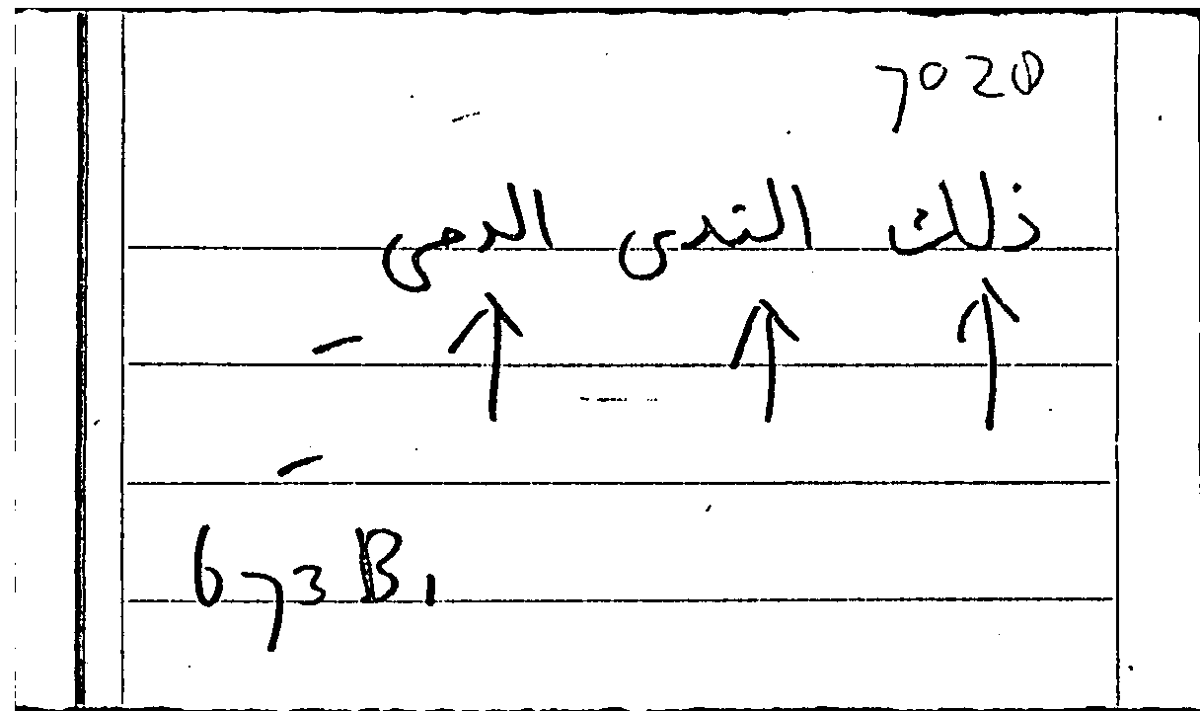 7020
ذلك الندى الدمى
673 B1